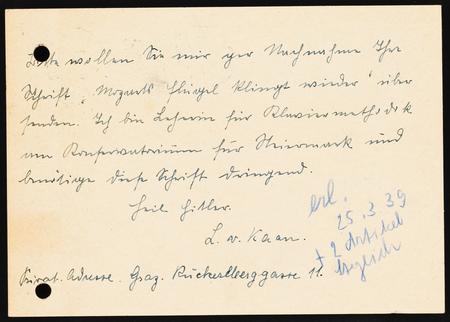 Bitte wollen Sie mir per Nachnahme Ihre
Schrift „Mozarts Flügel klingt wieder" über
senden. Ich bin Lehrerin für Klaviermethodik
am Konservatorium für Steiermark und
benötige diese Schrift dringend.
Heil Hitler.
L. v. Kaan.
Privat. Adresse. Graz. Ruckerlberggasse 11.
erl.
25.3.39
+ 2 Artikel